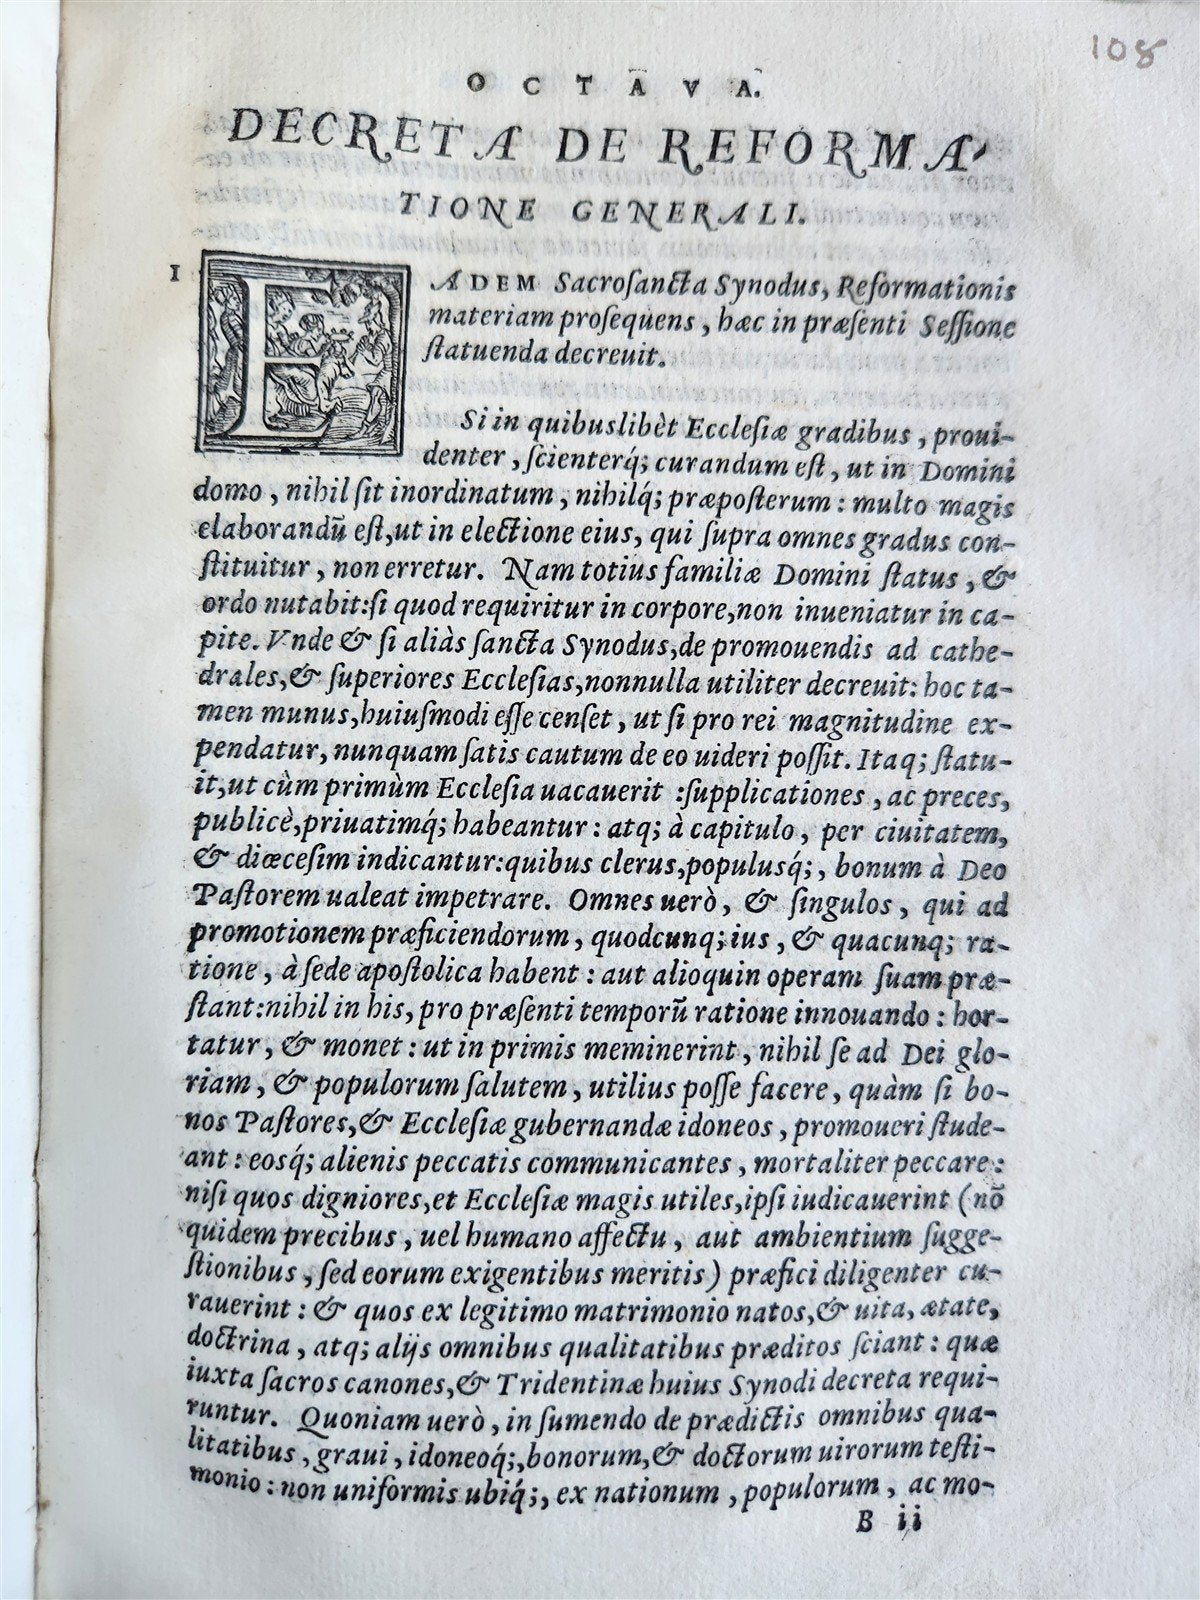 108
OCTAVA.
DECRETA DE REFORMA-
TIONE GENERALI.
1
EADEM Sacrosancta Synodus, Reformationis
materiam prosequens, hæc in præsenti Sessione
statuenda decreuit.
Si in quibuslibèt Ecclesiæ gradibus, proui-
denter, scienterq́; curandum est, ut in Domini
domo, nihil sit inordinatum, nihilq́; præposterum: multo magis
elaborandũ est, ut in electione eius, qui supra omnes gradus con-
stituitur, non erretur. Nam totius familiæ Domini status, &
ordo nutabit: si quod requiritur in corpore, non inueniatur in ca-
pite. Vnde & si aliàs sancta Synodus, de promouendis ad cathe-
drales, & superiores Ecclesias, nonnulla utiliter decreuit: hoc ta-
men munus, huiusmodi esse censet, ut si pro rei magnitudine ex-
pendatur, nunquam satis cautum de eo uideri possit. Itaq; statu-
it, ut cùm primùm Ecclesia uacauerit: supplicationes, ac preces,
publicè, priuatimq́; habeantur: atq; à capitulo, per ciuitatem,
& diœcesim indicantur: quibus clerus, populusq́;, bonum à Deo
Pastorem ualeat impetrare. Omnes uerò, & singulos, qui ad
promotionem præficiendorum, quodcunq; ius, & quacunq; ra-
tione, à sede apostolica habent: aut alioquin operam suam præ-
stant: nihil in his, pro præsenti temporũ ratione innouando: hor-
tatur, & monet: ut in primis meminerint, nihil se ad Dei glo-
riam, & populorum salutem, utilius posse facere, quàm si bo-
nos Pastores, & Ecclesiæ gubernandæ idoneos, promoueri stude-
ant: eosq́; alienis peccatis communicantes, mortaliter peccare:
nisi quos digniores, et Ecclesiæ magis utiles, ipsi iudicauerint (nõ
quidem precibus, uel humano affectu, aut ambientium sugge-
stionibus, sed eorum exigentibus meritis) præfici diligenter cu-
rauerint: & quos ex legitimo matrimonio natos, & uita, ætate,
doctrina, atq; alijs omnibus qualitatibus præditos sciant: quæ
iuxta sacros canones, & Tridentinæ huius Synodi decreta requi-
runtur. Quoniam uerò, in sumendo de prædictis omnibus qua-
litatibus, graui, idoneoq́;, bonorum, & doctorum uirorum testi-
monio: non uniformis ubiq́;, ex nationum, populorum, ac mo-
B ii